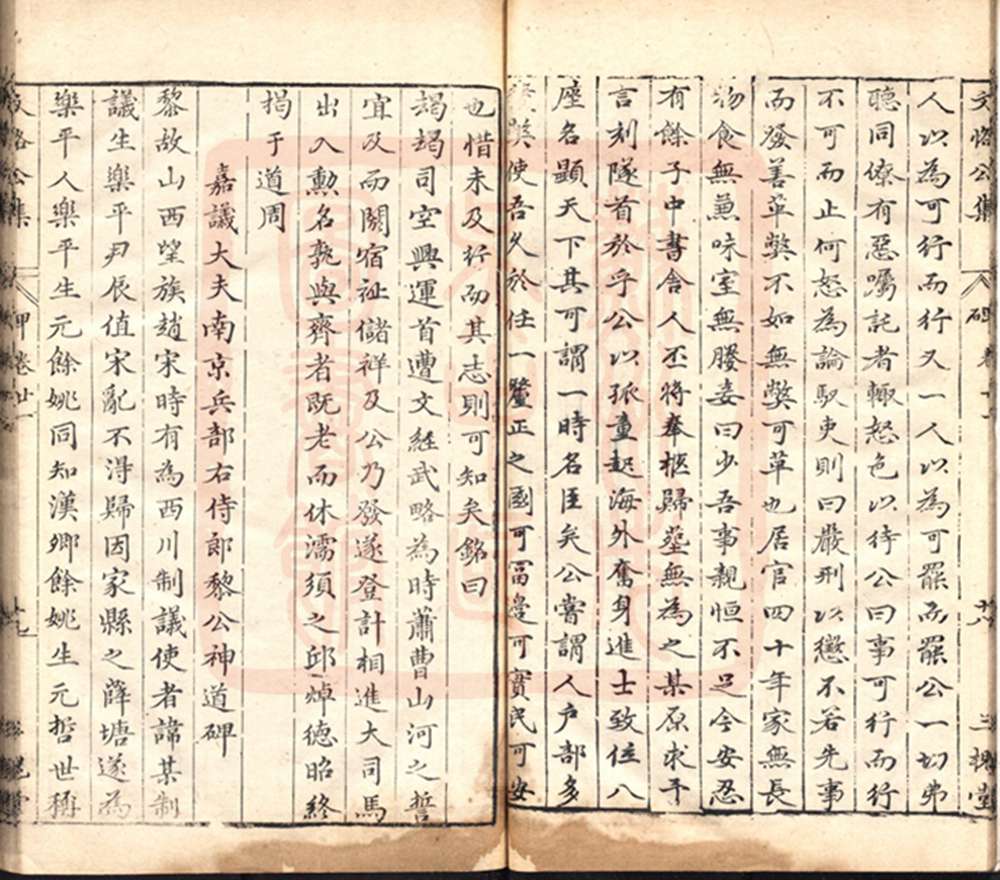 人以為可行而行又一人以為可罷而罷公一切弗
聽同僚有惡囑託者輙怒色以待公曰事可行而行
不可而止何怒為論馭吏則曰嚴刑以懲不若先事
而發善革獘不如無獘可革也居官四十年家無長
物食無兼味室無媵妾曰少吾事親恒不足今安忍
有餘子中書舍人丕將奉柩歸塟無為之某原求予
言刻隧首於乎公以孤童起海外奮身進士致位八
座名顯天下其可謂一時名臣矣公嘗謂人户部多
獘使吾久於任一釐正之國可冨邊可實民可安
也惜未及行而其志則可知矣銘曰
朅朅司空興運首遭文經武略為時蕭曹山河之誓
宜及而閼宿祉儲祥及公乃發遂登計相進大司馬
出入勲名孰與齊者既老而休濡須之邱焯德昭終
揭于道周
嘉議大夫南京兵部右侍郎黎公神道碑
黎故山西望族趙宋時有為西川制議使者諱某制
議生樂平尹辰值宋亂不淂歸因家縣之薛塘遂為
樂平人樂平生元餘姚同知漢卿餘姚生元哲世稱